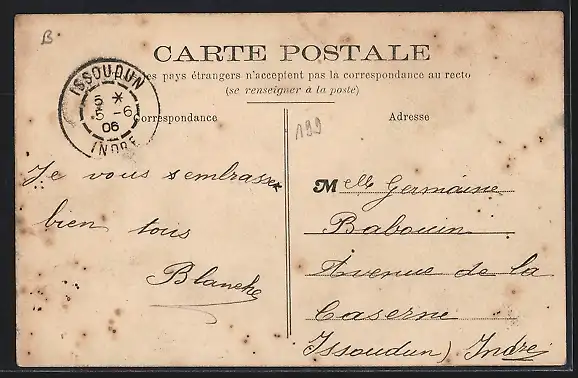 B
CARTE POSTALE
les pays étrangers n'acceptent pas la correspondance au recto
(se renseigner à la poste)
ISSOUDUN
5 *
5 -6
06
INDRE
Correspondance
Adresse
199
Je vous embrasse
bien tous
Blanche
Melle Germaine
Babouin
Avenue de la
Caserne
Issoudun) Indre